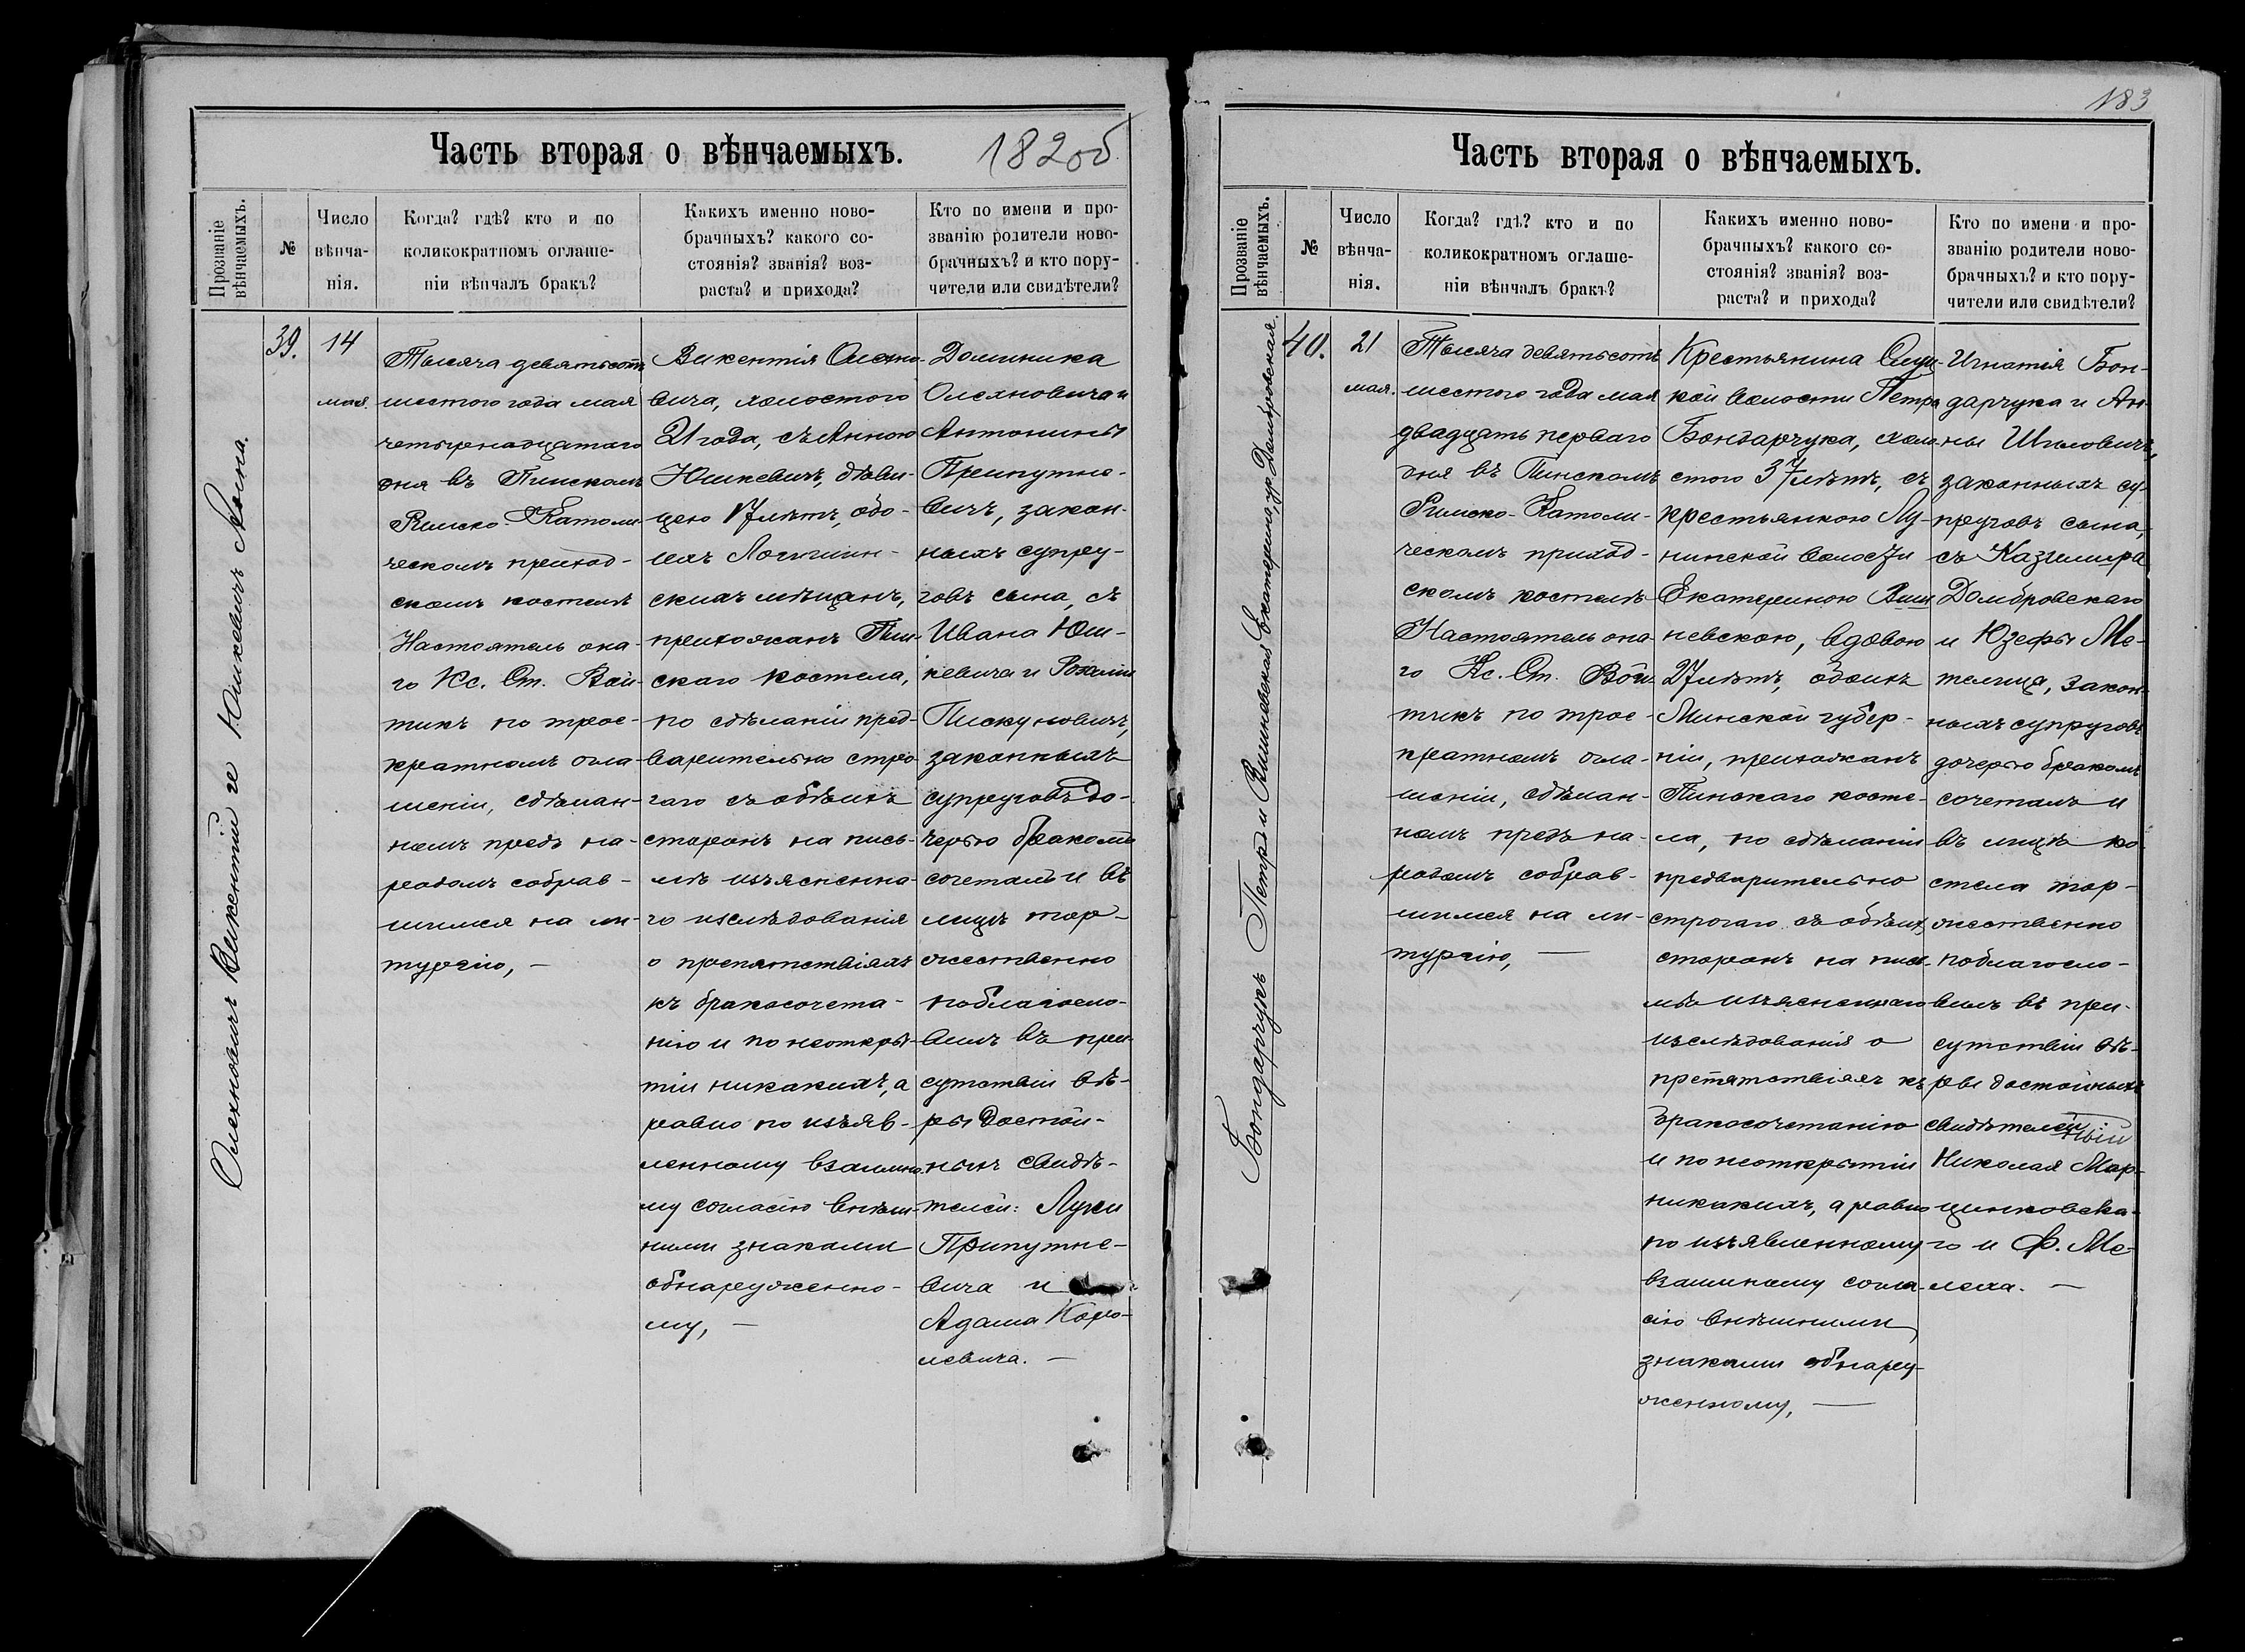 Часть вторая о вѣнчаемыхъ.
182об
Прозваніе
вѣнчаемыхъ.
№
Число
вѣнча-
нія.
Когда? гдѣ? кто и по
коликократномъ оглаше-
ніи вѣнчалъ бракъ?
Какихъ именно ново-
брачныхъ? какого со-
стоянія? званія? воз-
раста? и прихода?
Кто по имени и про-
званію родители ново-
брачныхъ? и кто пору-
чители или свидѣтели?
Олехновичъ Викентій и Юшкевичъ Анна.
39.
14
мая.
Тысяча девятьсотъ
шестого года мая
четырнадцатаго
дня въ Пинскомъ
Римско-Католи-
ческомъ приход-
скомъ костелѣ
Настоятель она-
го Кс. Ст. Вой-
тикъ по трое-
кратномъ огла-
шеніи, сдѣлан-
номъ предъ на-
родомъ собрав-
шимся на ли-
тургію, —
Викентія Олехно-
вича, холостого
21 года, съ Анною
Юшкевичъ, дѣви-
цею 17 лѣтъ, обо-
ихъ Логишин-
скихъ мѣщанъ,
прихожанъ Пин-
скаго костела,
по сдѣланіи пред-
варительно стро-
гаго съ обѣихъ
сторонъ на пись-
мѣ изъясненна-
го изслѣдованія
о препятствіяхъ
къ бракосочета-
нію и по неоткры-
тіи никакихъ, а
равно по изъяв-
ленному взаимно-
му согласію внѣш-
ними знаками
обнаруженно-
му, —
Доминика
Олехновича и
Антонины
Припутне-
вичъ, закон-
ныхъ супру-
говъ сына, съ
Ивана Юш-
кевича и Розаліи
Пискуновичъ,
законныхъ
супруговъ до-
черью бракомъ
сочеталъ и въ
лицѣ тор-
жественно
поблагосло-
вилъ въ при-
сутствіи вѣ-
ры достой-
ныхъ свидѣ-
телей: Луки
Припутне-
вича и
Адама Коро-
левича. —
183
Часть вторая о вѣнчаемыхъ.
Прозваніе
вѣнчаемыхъ.
№
Число
вѣнча-
нія.
Когда? гдѣ? кто и по
коликократномъ оглаше-
ніи вѣнчалъ бракъ?
Какихъ именно ново-
брачныхъ? какого со-
стоянія? званія? воз-
раста? и прихода?
Кто по имени и про-
званію родители ново-
брачныхъ? и кто пору-
чители или свидѣтели?
Бондарчукъ Петръ и Вишневская Екатерина, ур. Домбровская.
40.
21
мая.
Тысяча девятьсотъ
шестого года мая
двадцать перваго
дня въ Пинскомъ
Римско-Католи-
ческомъ приход-
скомъ костелѣ
Настоятель она-
го Кс. Ст. Вой-
тикъ по трое-
кратномъ огла-
шеніи, сдѣлан-
номъ предъ на-
родомъ собрав-
шимся на ли-
тургію, —
Крестьянина
кой волости Петра
Бондарчука, холо-
стого 37 лѣтъ, съ
крестьянкою Лу-
нинской волости
Екатериною Виш-
невскою, вдовою
27 лѣтъ, обоихъ
Минской губер-
ніи, прихожанъ
Пинскаго косте-
ла, по сдѣланіи
предварительно
строгаго съ обѣихъ
сторонъ на пись-
мѣ изъясненнаго
изслѣдованія о
препятствіяхъ къ
бракосочетанію
и по неоткрытіи
никакихъ, а равно
по изъявленному
взаимному согла-
сію внѣшними
знаками обнару-
женному, —
Игнатія Бон-
дарчука и Ан-
ны
законныхъ су-
пруговъ сына,
съ Казимира
Домбровскаго
и Юзефы Ме-
телица, закон-
ныхъ супруговъ
дочерью бракомъ
сочеталъ и
въ лицѣ ко-
стела тор-
жественно
поблагосло-
вилъ въ при-
сутствіи вѣ-
ры достойныхъ
свидѣтелей
Николая Мар-
цинковска-
го и Ф. Ме-
леха. —